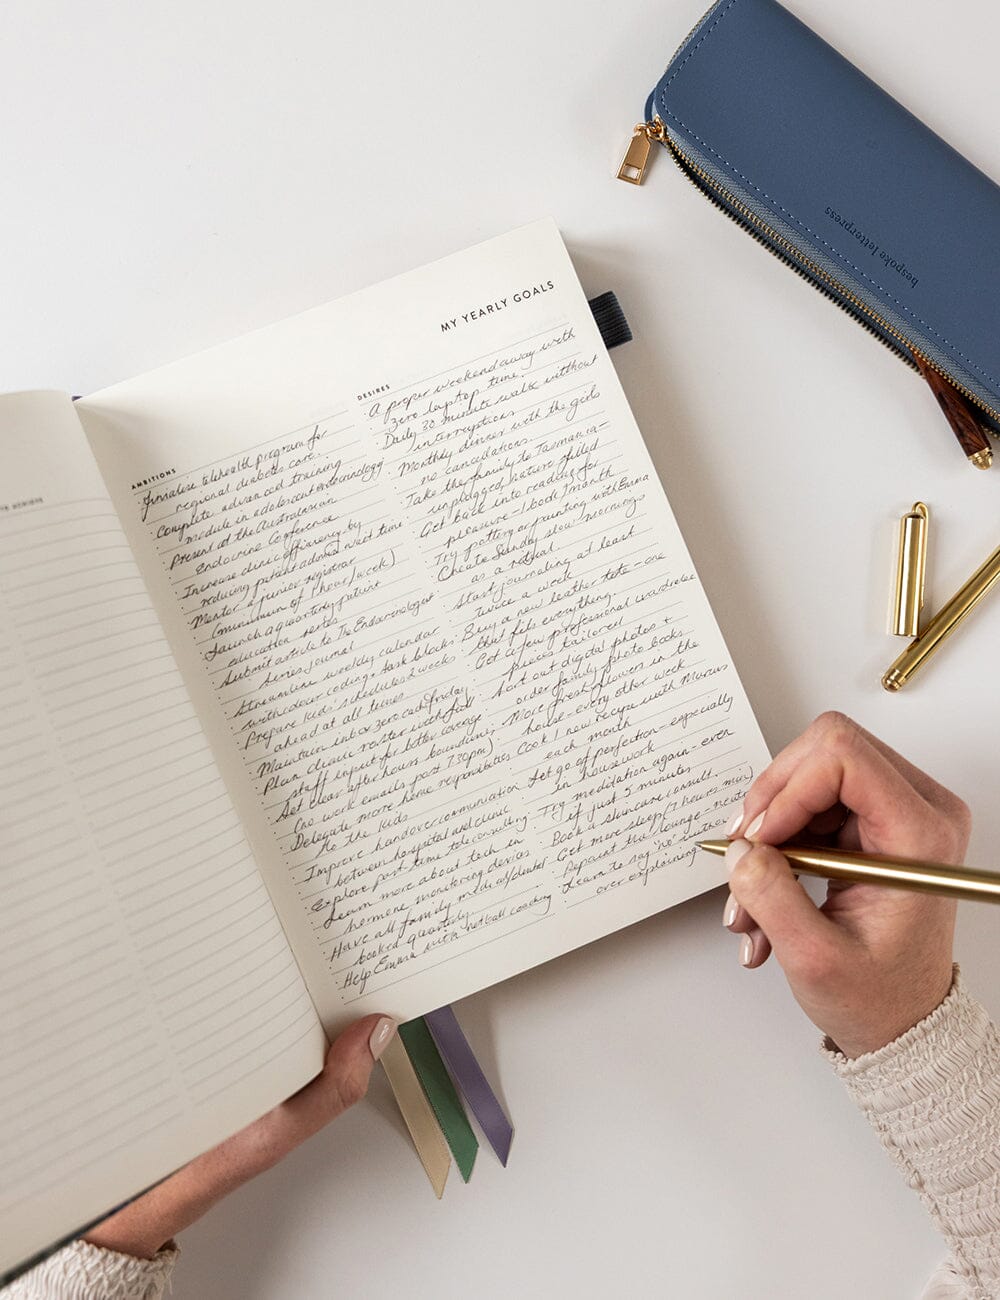 MY YEARLY GOALS
AMBITIONS
Finalise telehealth program for
regional diabetes care.
Complete advanced training
module in adolescent endocrinology
Present at the Australasian
Endocrine Conference
Increase clinic efficiency by
reducing patient admin wait time
Mentor a junior registrar
(minimum of 1 hour/week)
Launch a quarterly patient
education series
Submit article to The Endocrinologist
Series journal
Streamline weekly calendar
with colour coding + task blocks
Prepare kids' schedules 2 weeks
ahead at all times
Maintain inbox zero each friday
Plan clinic roster with full
staff input for better coverage
Set clear after hours boundaries
(no work emails past 730pm)
Delegate more home responsibilities
to the kids
Improve handover communication
between hospital and clinic
Explore part-time teleconsulting
Learn more about tech in
hormone monitoring devices
Have all family medical/dental
booked quarterly
Help Emma with netball coaching
DESIRES
A proper weekend away with
zero laptop time.
Daily 30 minute walk without
interruptions
Monthly dinner with the girls
no cancellations.
Take the family to Tasmania-
unplugged, nature filled
Get back into reading for
pleasure - 1 book/month
Try pottery or painting with Emma
Create Sunday slow mornings
as a ritual
Start journaling at least
twice a week
Buy a new leather tote - one
that fits everything.
Get a few professional wardrobe
pieces tailored
Sort out digital photos +
order family photo books
More fresh flowers in the
house - every other week
Cook 1 new recipe with Marcus
each month
Let go of perfection - especially
in housework
Try meditation again - even
if just 5 minutes
Book a skincare consult.
Get more sleep (7 hours min)
Repaint the lounge
Learn to say 'no' without
over explaining
bespoke letterpress